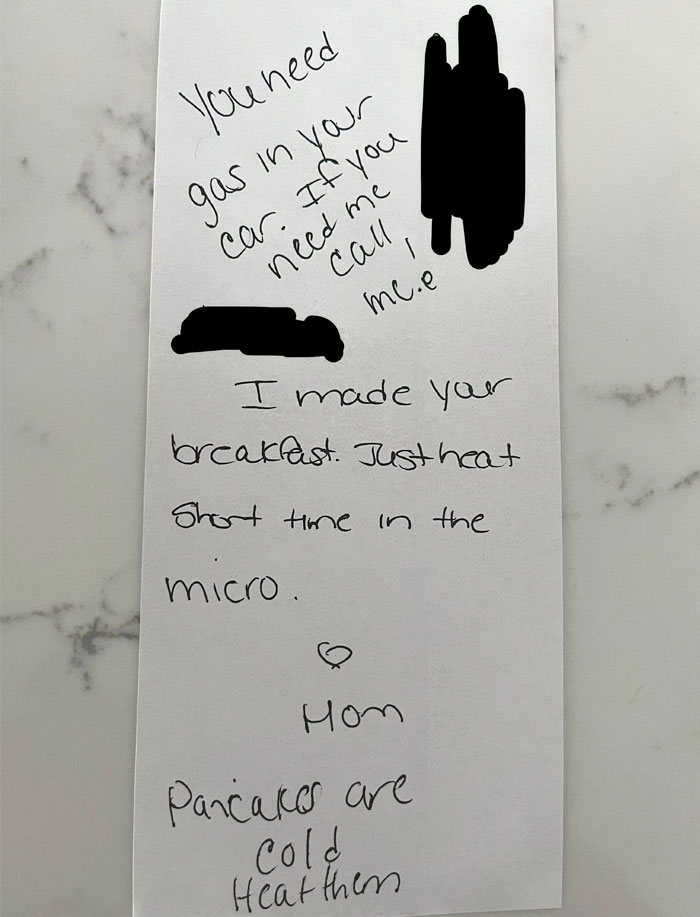 You need
gas in your
car. If you
need me
call
me.
I made your
breakfast. Just heat
short time in the
micro.
Mom
Pancakes are
cold
Heat them